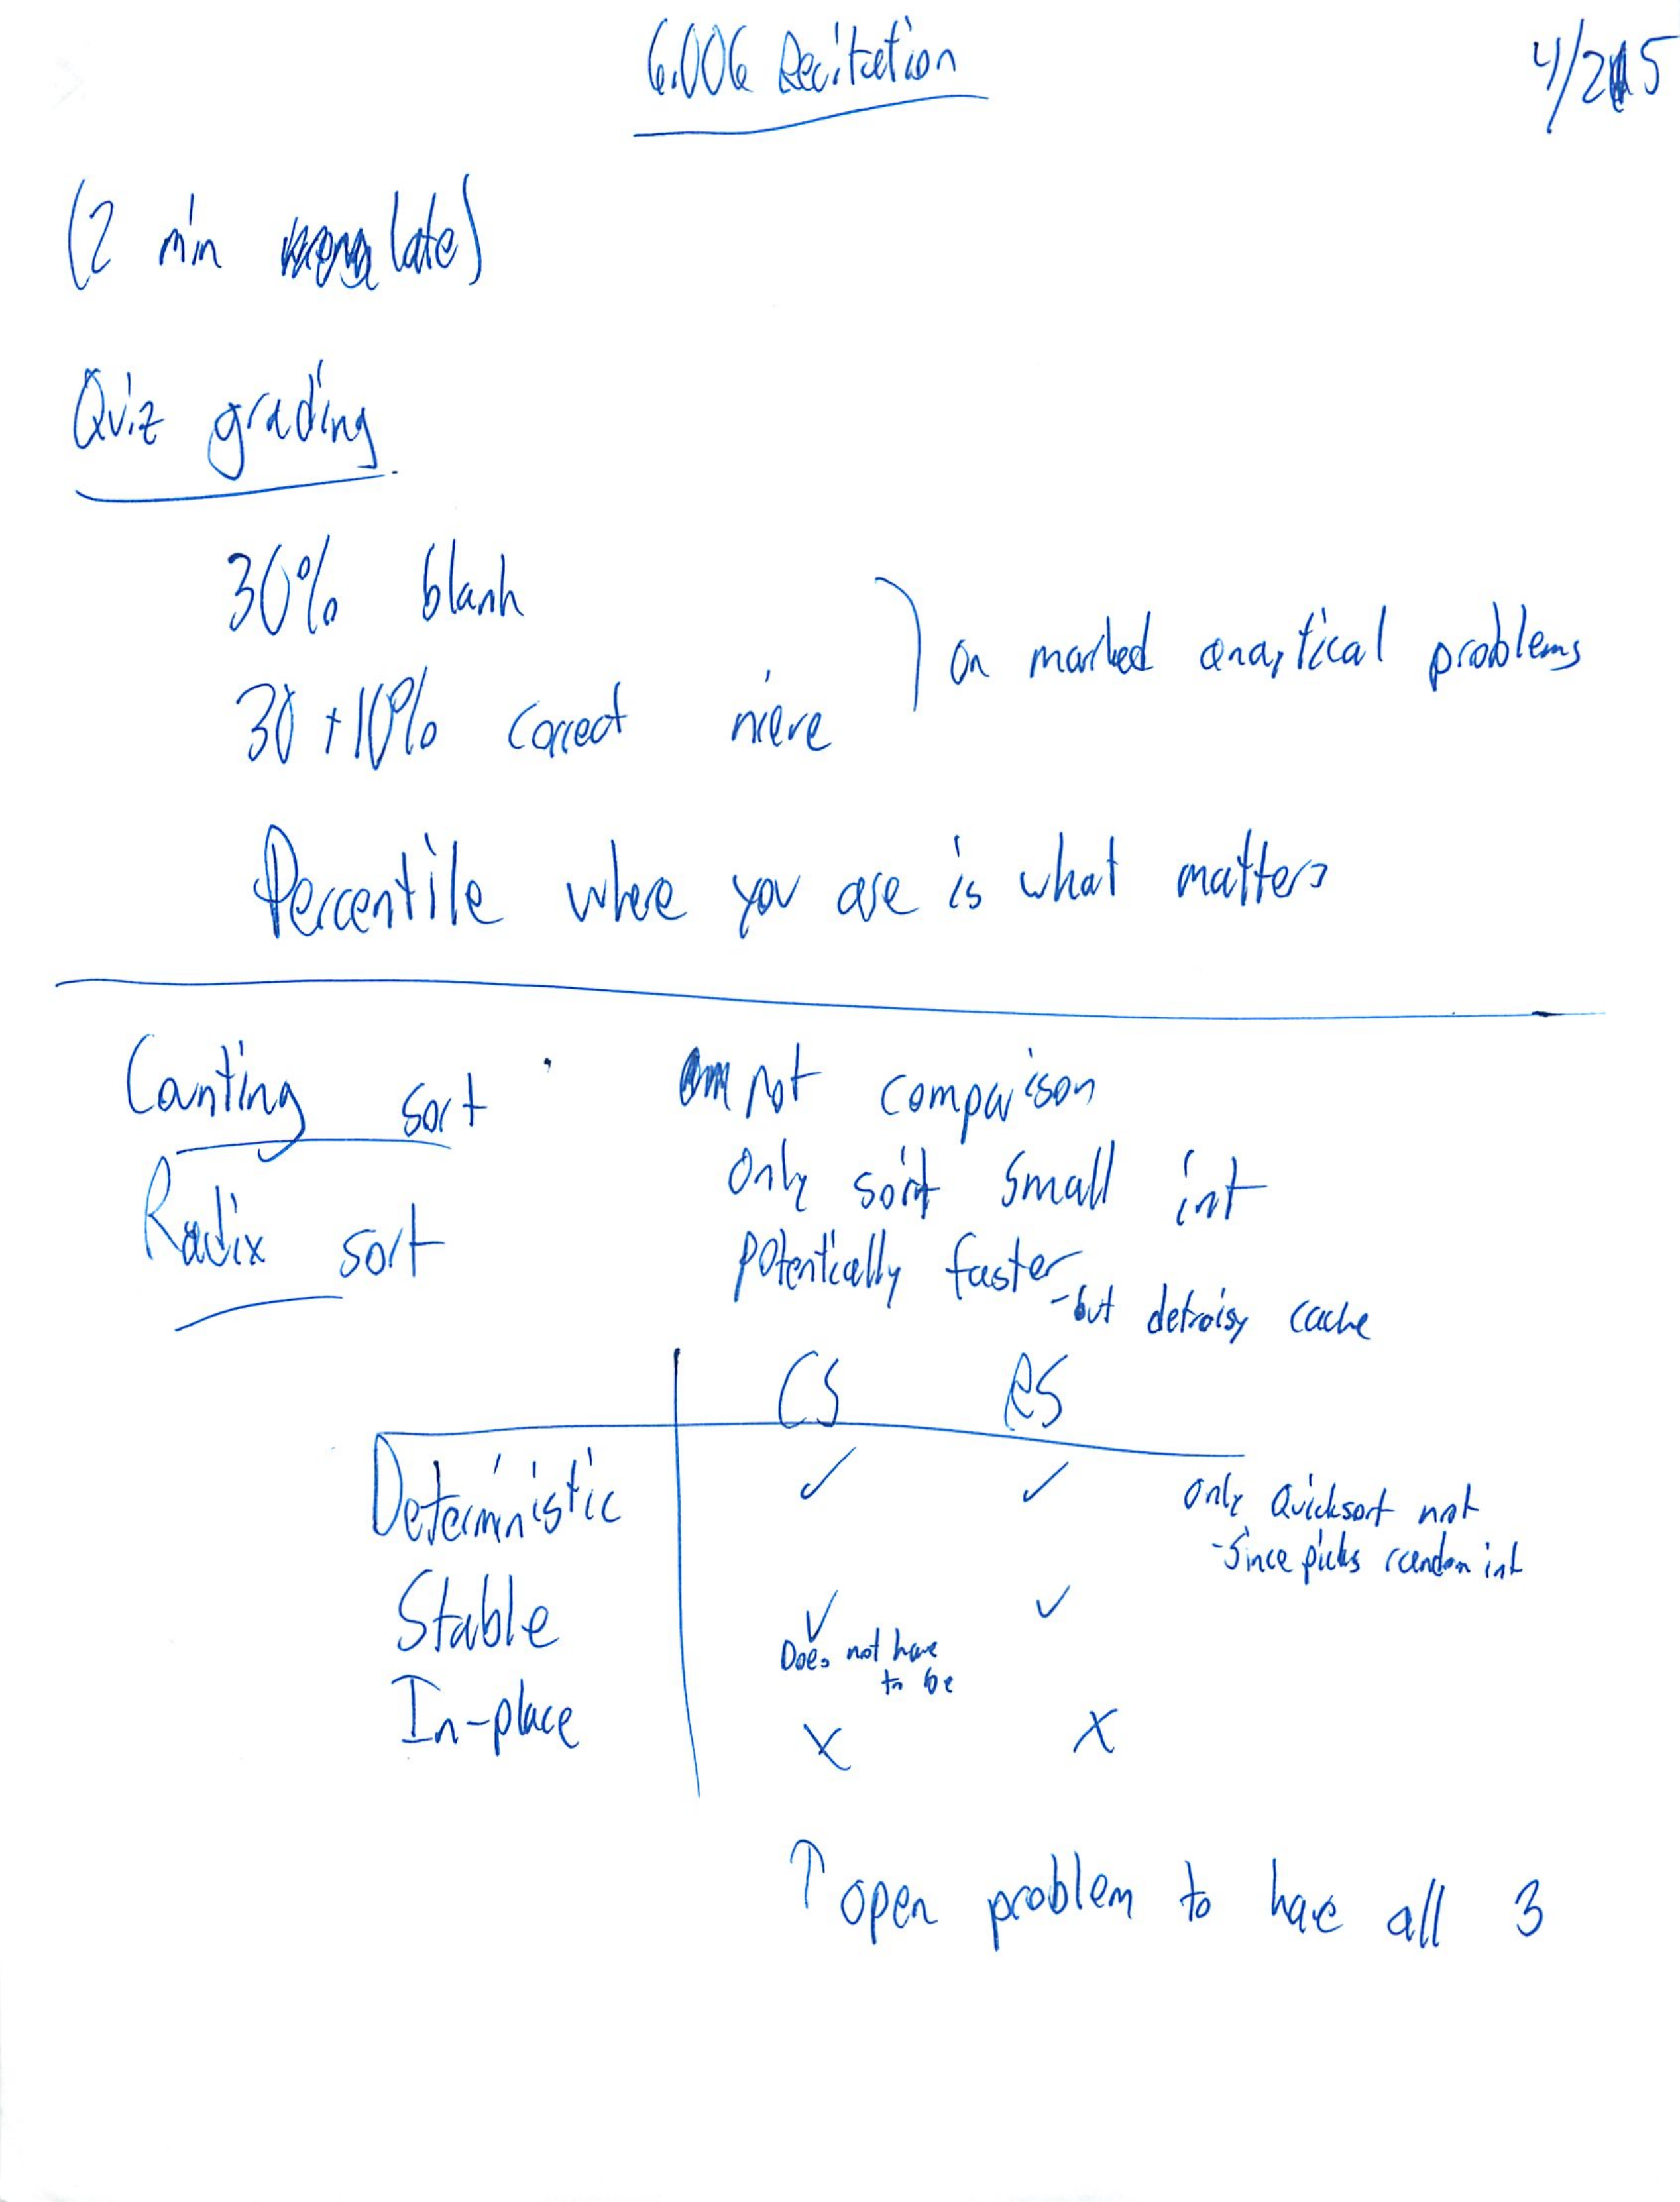 6.006 Recitation
4/25
(2 min late)
Quiz grading
30% blank
30+10% correct nieve
on marked anaytical problems
Percentile where you are is what matters
Counting sort
not comparison
Only sort small int
Radix sort
potentially faster
-but detroisy cache
CS RS
Deterministic ✓ ✓
Only Quicksort not
-Since picks random int
Stable ✓ ✓
Does not have
to be
In-place X X
↑ open problem to have all 3